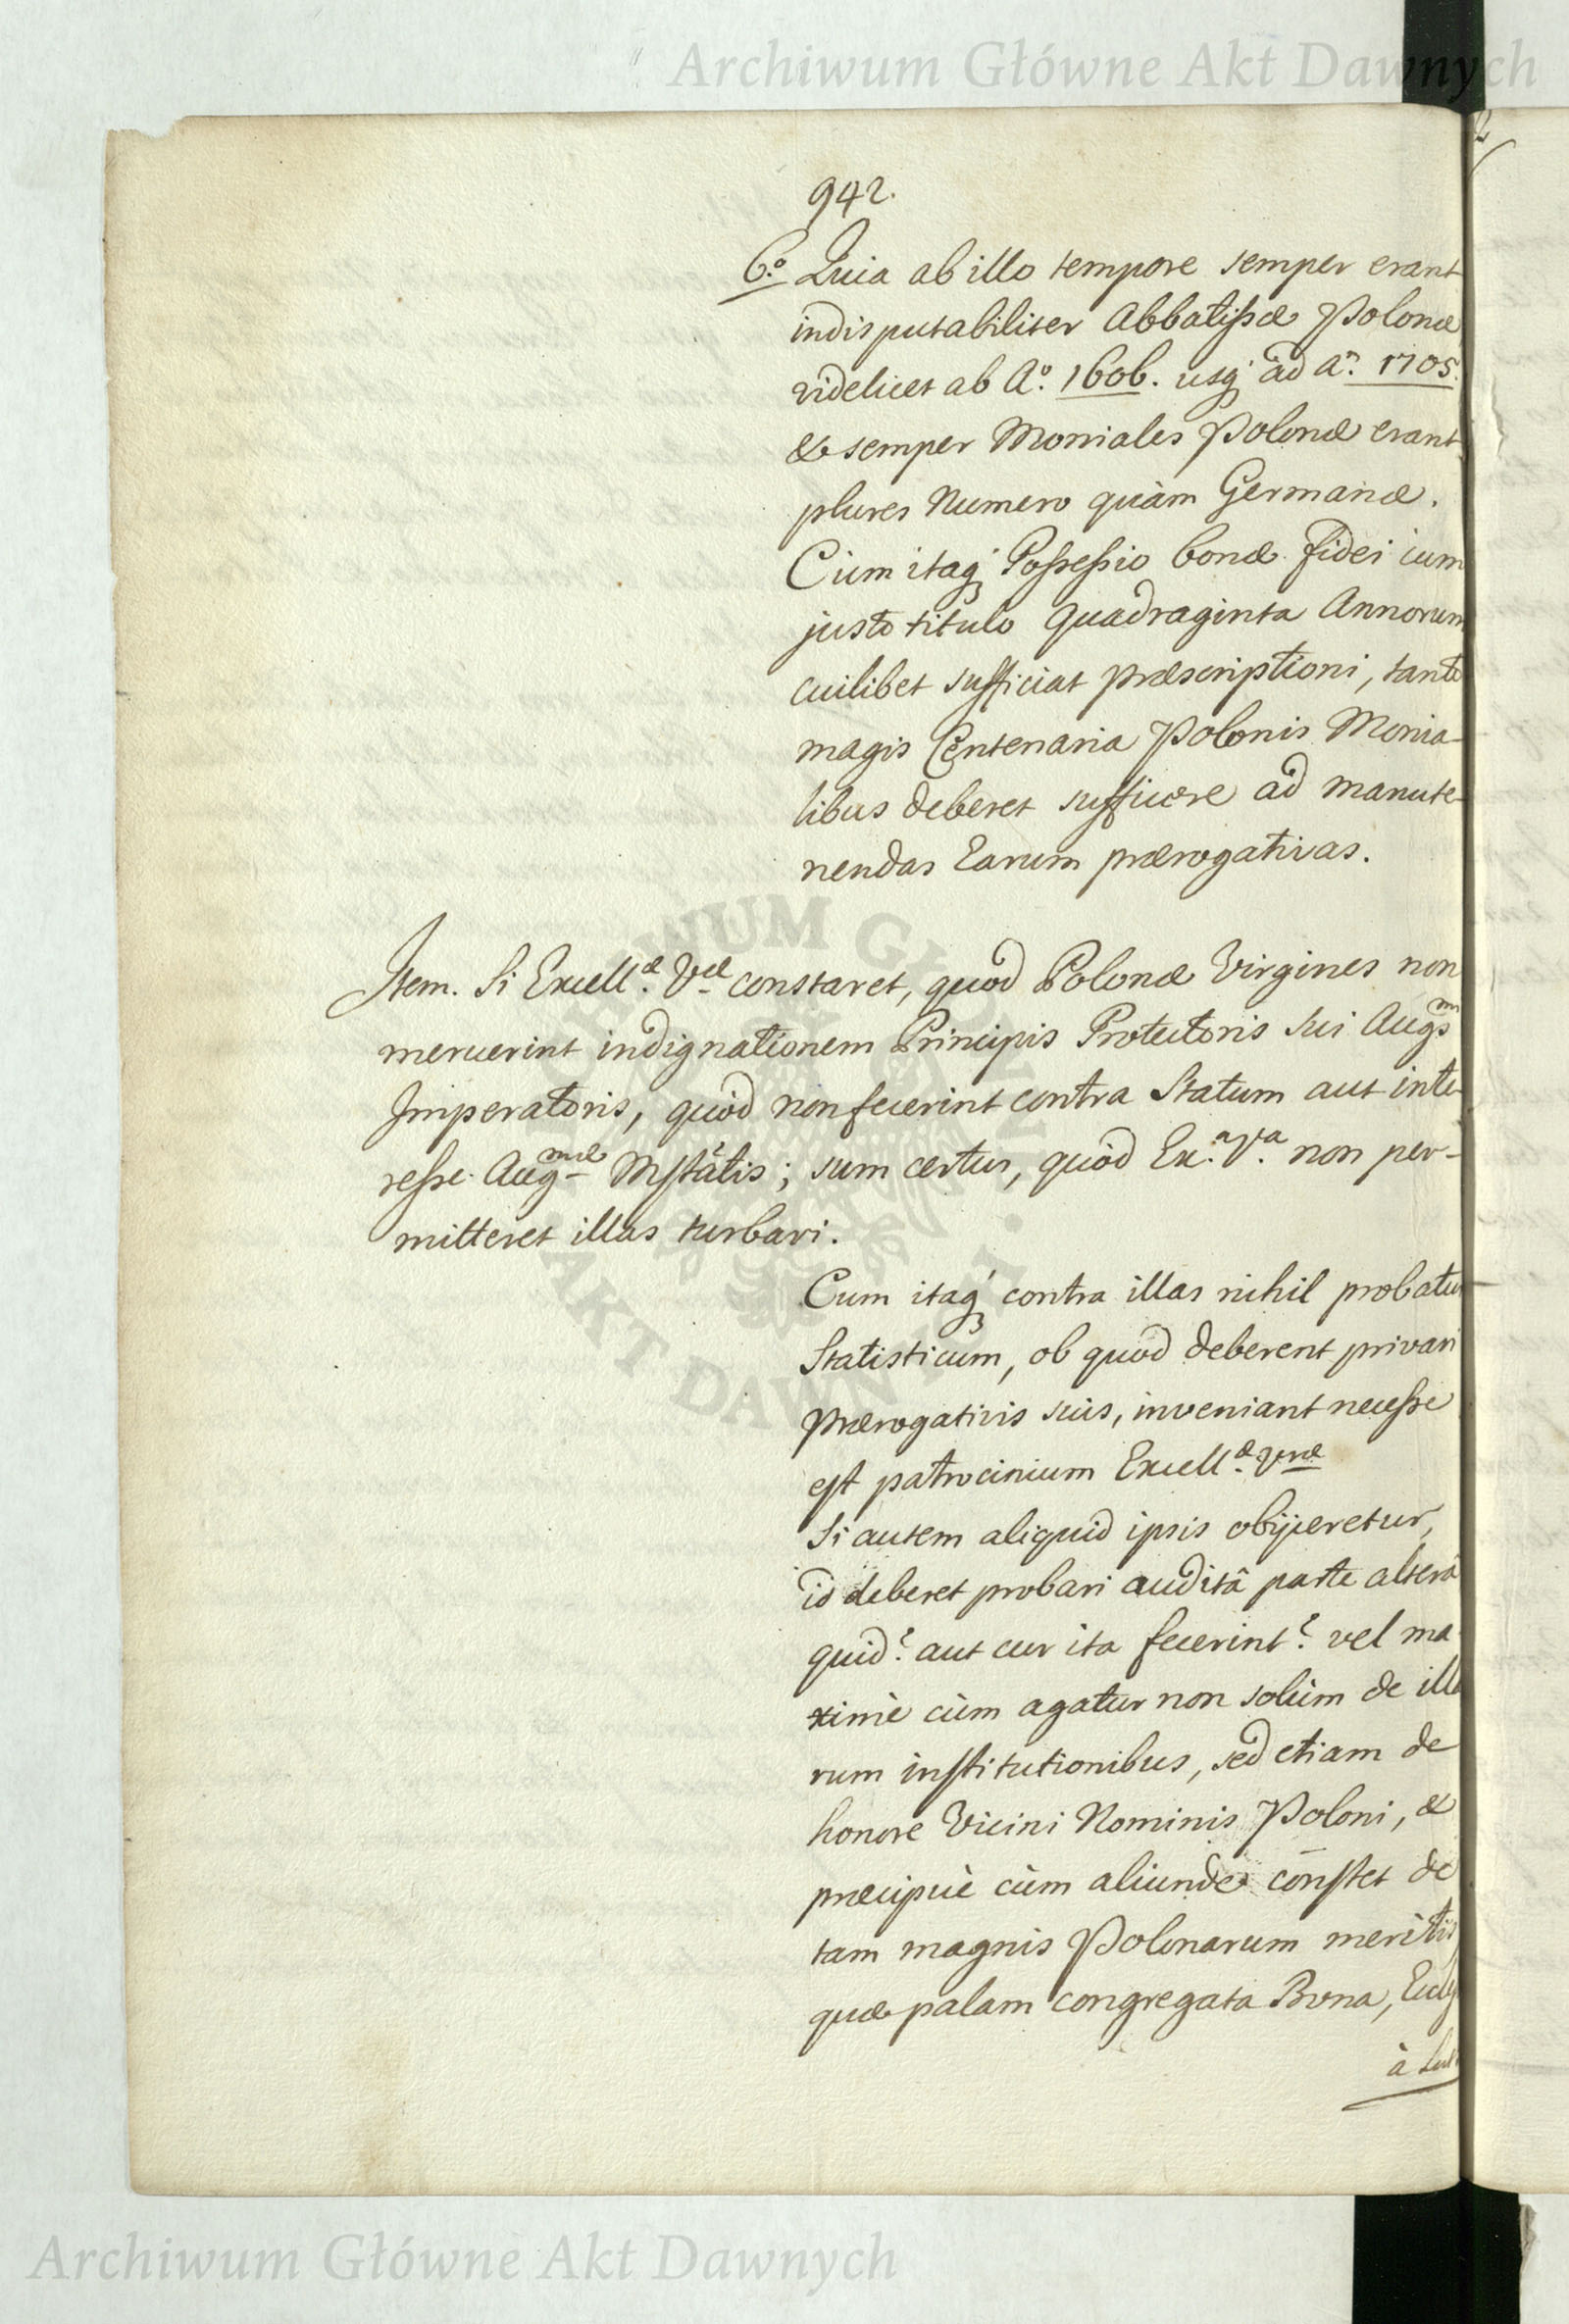 Archiwum Główne Akt Dawnych
942.
6.º Quia ab illo tempore semper erant
indisputabiliter Abbatißæ Polonæ
videlicet ab Aº. 1606. usq́ ad Aº. 1705.
& semper Moniales Polonæ erant
plures Numero quàm Germanæ.
Cùm itaq́ Poßeßio bonæ fidei cum
justo titulo Quadraginta Annorum
cuilibet sufficiat præscriptioni, tantò
magis Centenaria Polonis Monia-
libus deberet sufficere ad manute-
nendas Earum prærogativas.
Item. Si Excell.æ Væ constaret, quod Polonæ Virgines non
meruerint indignationem Principis Protectoris sui Augmi
Imperatoris, quòd non fecerint contra Statum aut inte-
reße Augmæ Mstãtis; sum certus, quòd Ex.a V.a non per-
mitteret illas turbari.
Cum itaq́ contra illas nihil probatur
Statisticum, ob quod deberent privari
Prærogativis suis, inveniant neceße
est patrocinium Excell.æ Vræ
Si autem aliquid ipsis obijceretur,
id deberet probari auditâ parte alterâ
quid? aut cur ita fecerint? vel ma-
ximè cùm agatur non solùm de illa
rum institutionibus, sed etiam de
honore Vicini Nominis Poloni, &
præcipuè cùm aliunde cōnstet de
tam magnis Polonarum meritis,
quæ palam congregata Bona,
à
ARCHIWUM GŁÓWNE
AKT DAWNYCH
Archiwum Główne Akt Dawnych